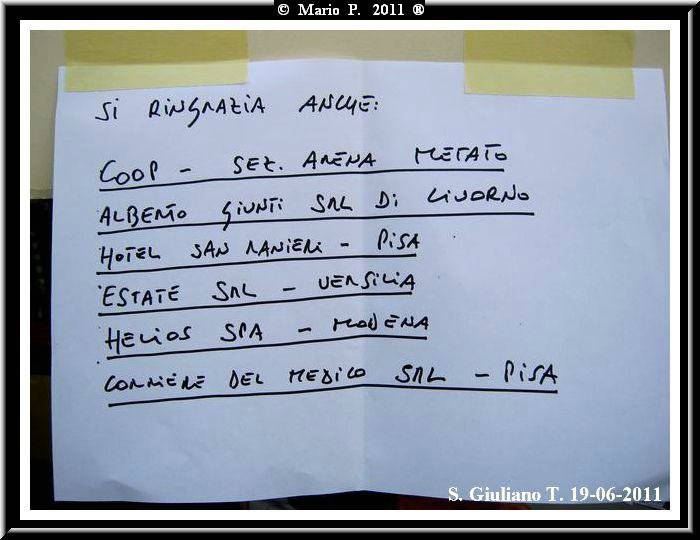 © Mario P. 2011 ®
Si RINGRAZIA ANCHE:
COOP - SEZ. ARENA METATO
ALBERTO GIUNTI SRL Di LIVORNO
HOTEL SAN RANIERI - PiSA
ESTATE SRL - VERSILIA
HELIOS SPA - MODENA
CORRIERE DEL MEDICO SRL - PiSA
S. Giuliano T. 19-06-2011